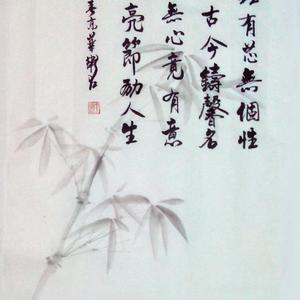 有芯無個性
古今鑄馨名
無心竟有意
亮節励人生